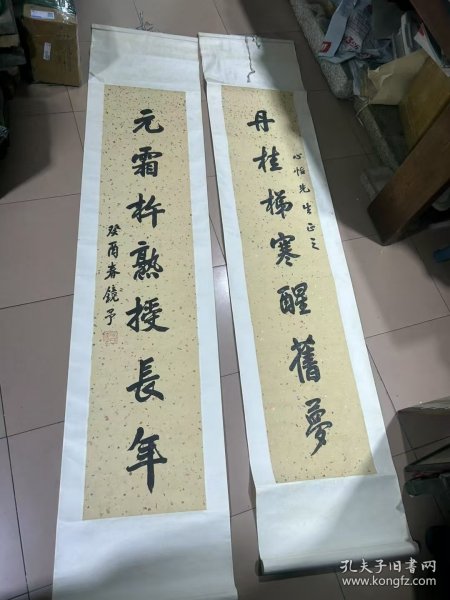 丹桂梯寒醒舊夢
心怡先生正之
元霜杵熟授長年
癸酉春鏡予
孔夫子旧书网
www.kongfz.com